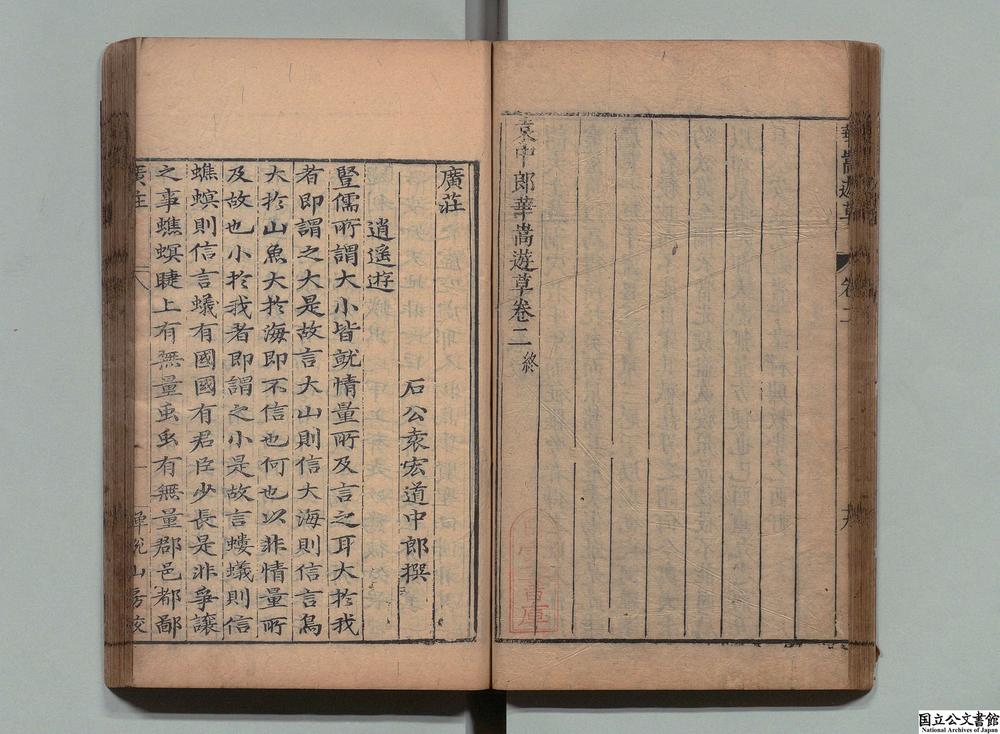 華嵩遊草 卷二
袁中郎華嵩遊草卷二終
廣莊
石公袁宏道中郎撰
逍遥遊
豎儒所謂大小皆就情量所及言之耳大於我
者即謂之大是故言大山則信大海則信言鳥
大於山魚大於海即不信也何也以非情量所
及故也小於我者即謂之小是故言螻蟻則信
蟭螟則信言蟻有國國有君臣少長是非爭讓
之事蟭螟睫上有無量虫虫有無量郡邑都鄙
廣莊
国立公文書館
National Archives of Japan